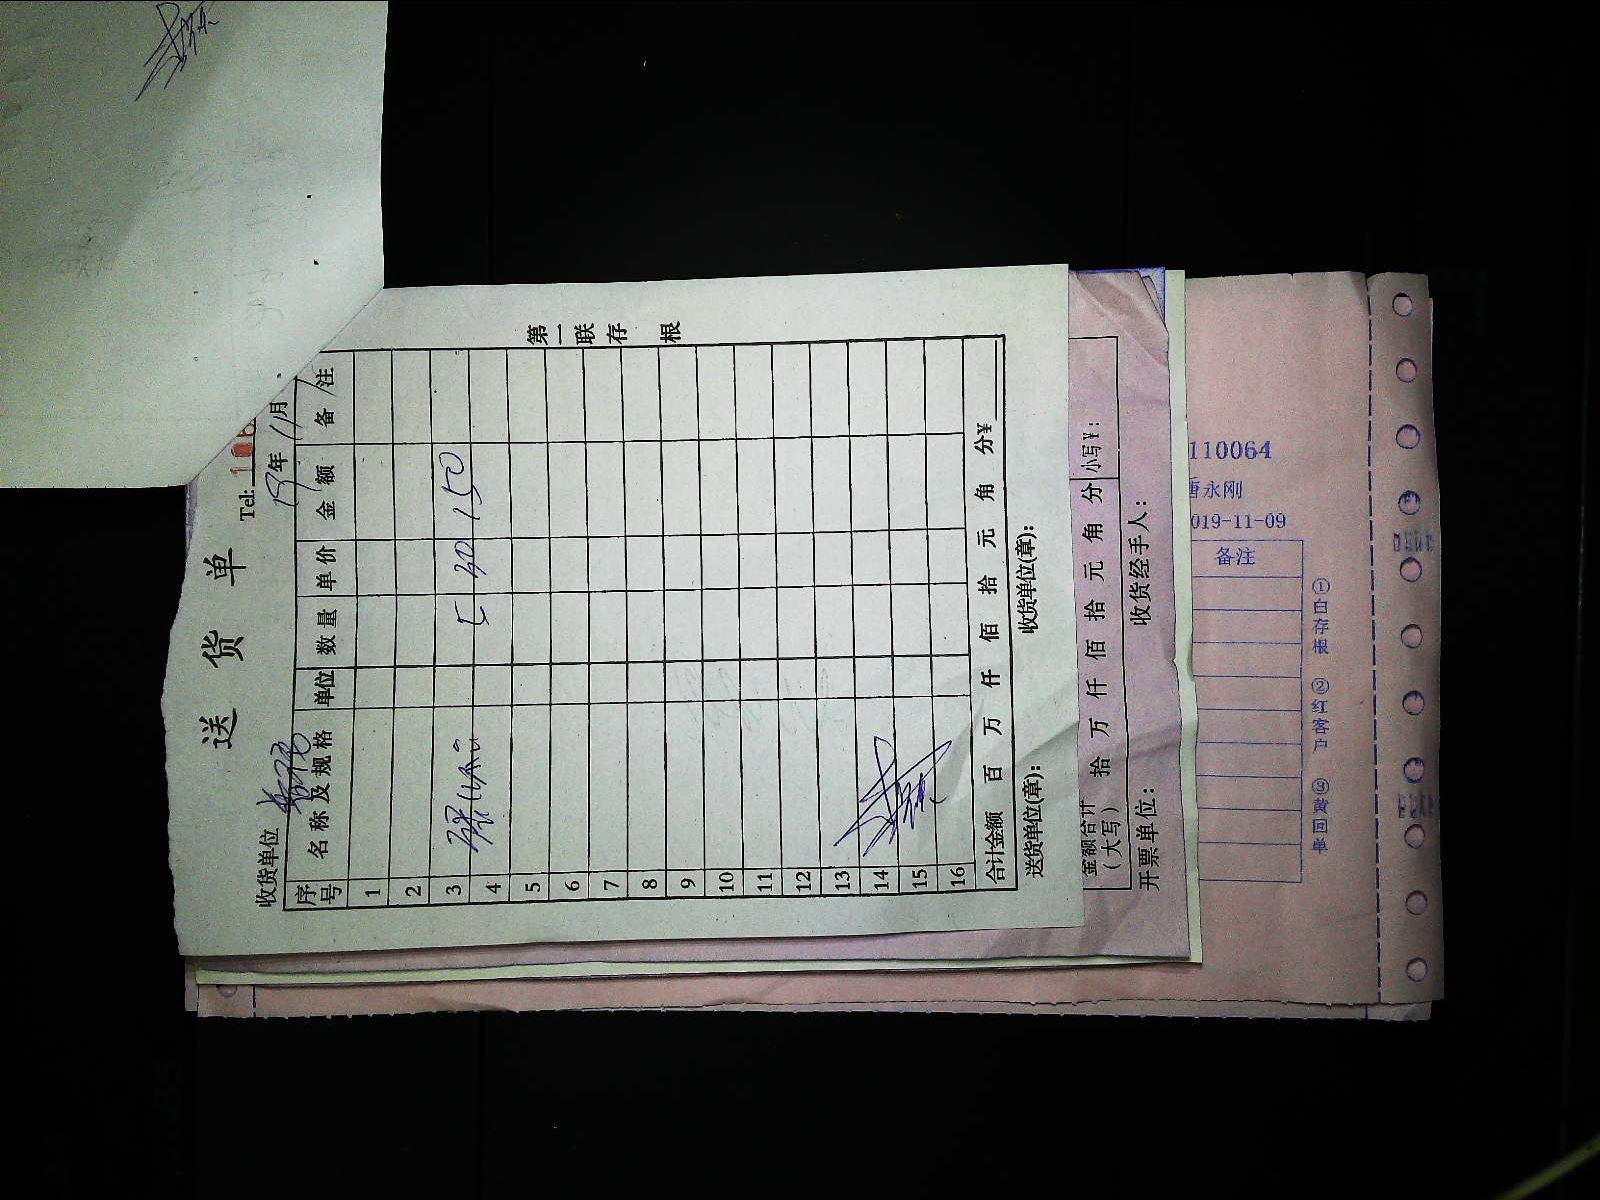 送 货 单
Tel: 1
收货单位
19年11月
序号 名称及规格 单位 数量 单价 金额 备注
1
2
3 5 30 150
4
5
6
7
8
9
10
11
12
13
14
15
16
合计金额 百 万 仟 佰 拾 元 角 分¥
送货单位(章): 收货单位(章):
第一联存根
金额合计(大写) 拾 万 仟 佰 拾 元 角 分 小写¥:
开票单位: 收货经手人:
110064
唐永刚
019-11-09
备注
①白存根 ②红客户 ③黄回单